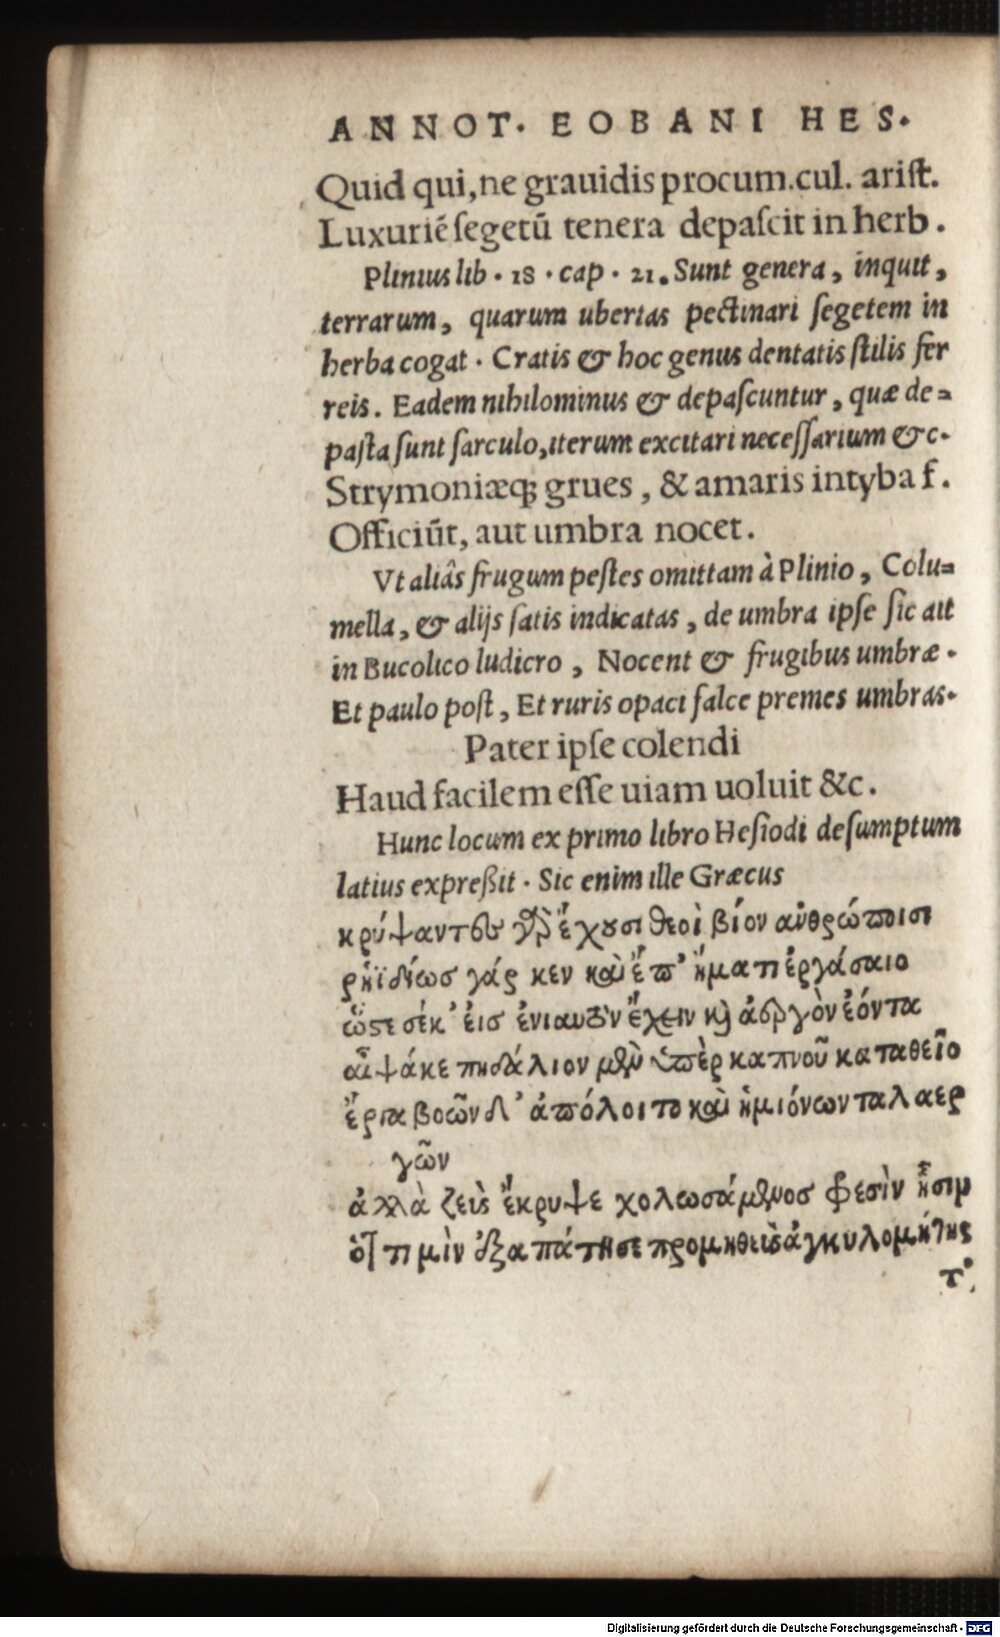 ANNOT. EOBANI HES.
Quid qui, ne grauidis procum. cul. arist.
Luxuriē segetū tenera depascit in herb.
Plinius lib. 18. cap. 21. Sunt genera, inquit,
terrarum, quarum ubertas pectinari segetem in
herba cogat. Cratis & hoc genus dentatis stilis fer
reis. Eadem nihilominus & depascuntur, quæ de=
pasta sunt sarculo, iterum excitari necessarium &c.
Strymoniæq; grues, & amaris intyba f.
Officiūt, aut umbra nocet.
Vt aliâs frugum pestes omittam à Plinio, Colu=
mella, & alijs satis indicatas, de umbra ipse sic ait
in Bucolico ludicro, Nocent & frugibus umbræ.
Et paulo post, Et ruris opaci falce premes umbras.
Pater ipse colendi
Haud facilem esse uiam uoluit &c.
Hunc locum ex primo libro Hesiodi desumptum
latius expreßit. Sic enim ille Græcus
κρύψαντες γὰρ ἔχουσι θεοὶ βίον ἀνθρώποισι
ῥηϊδίως γάρ κεν καὶ ἔπ' ἤματι ἐργάσαιο
ὥστε σέκ' εἰς ἐνιαυτὸν ἔχειν καὶ ἀεργὸν ἐόντα
αἶψάκε πηδάλιον μὲν ὑπὲρ καπνοῦ καταθεῖο
ἔργα βοῶν δ' ἀπόλοιτο καὶ ἡμιόνων ταλαερ
γῶν
ἀλλὰ ζεὺς ἔκρυψε χολωσάμενος φρεσὶν ᾗσιν
ὅττι μὶν ἐξαπάτησε προμηθεὺς ἀγκυλομήτης
τ'
Digitalisierung gefördert durch die Deutsche Forschungsgemeinschaft - DFG